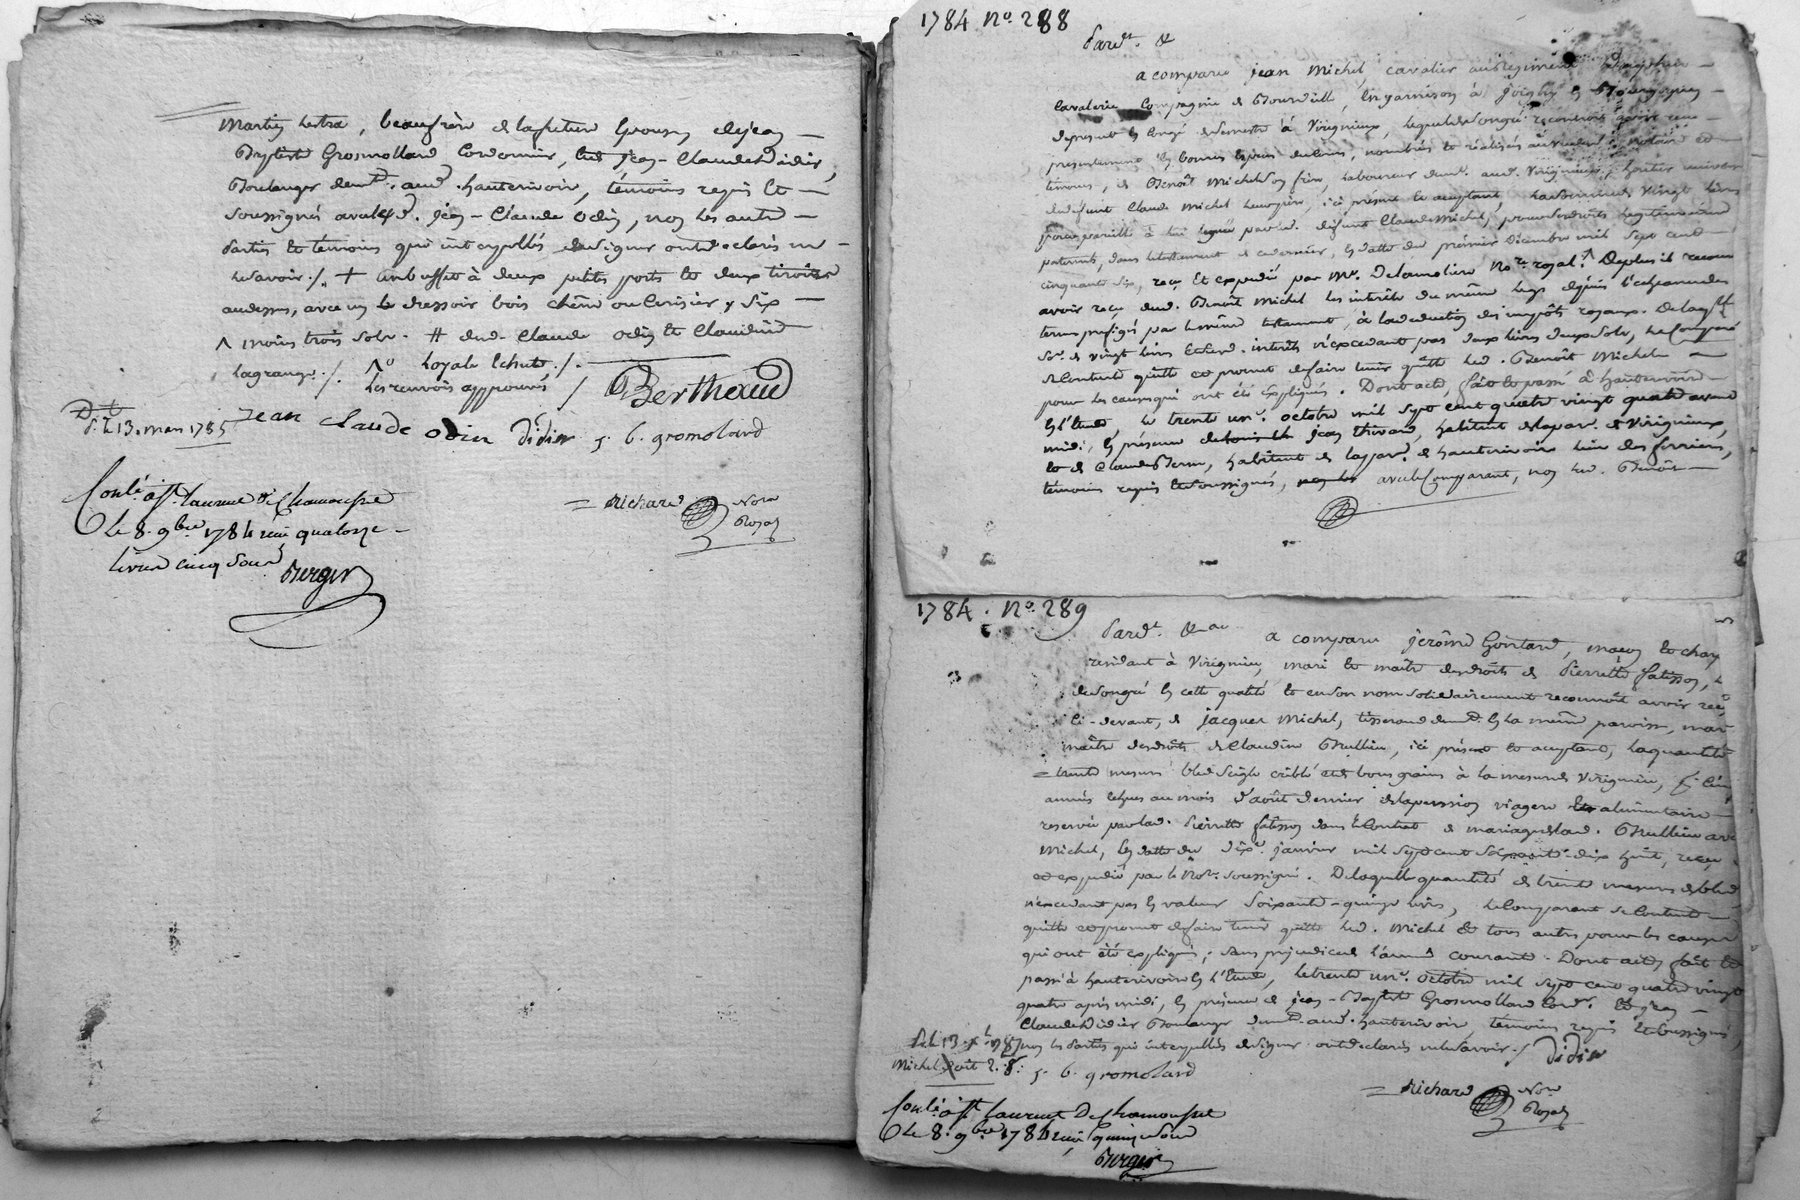 Martin , beaufrère de la future Epouse, de jean
Baptiste Grosmolland Cordonnier, de jean-Claude Didier,
Boulanger demt. aud. hauterivoire, témoins requis et
soussignés avec led. jean-Claude Odin, non les autres
Parties et témoins qui interpellés de signer ont déclaré ne
le savoir ./. + un buffet à deux petites portes et deux tiroirs
au dessus, avec un dressoir bois chêne ou cerisier
^ moins trois sols. # dud. Claude Odin et Claudine
lagrange ./. loyale échute ./.
les renvois approuvés / Berthaud
D. le 13. mars 1785 Jean Claude odin Didier j. b. gromoland
Conlé. à St. laurent de Chamousset
le 8. 9bre 1784 reçu quatorze
livres cinq sous
Berger
= Richard Nore
Royal
1784 No. 288
Pardt. &
a comparu jean Michel, cavalier au Regiment Dauphin
Cavalerie Compagnie de Bourdeille, en garnison à Joigny en Bourgogne
de present en Congé de Semestre à Virignieux, lequel de son gré reconnoit avoir reçu
presentement en bonnes Especes de cours, nombrées et réalisées au vu du Notaire et
témoins, de Benoît Michel son frere, laboureur demt. aud. Virignieux, heritier universel
de defunt Claude Michel leur pere, ici présent et acceptant, la somme de vingt livres
pour pareille à lui leguée par led. défunt Claude Michel, pour ses droits legitimaires
paternels, dans le testament de ce dernier, en datte du premier Décembre mil sept cent
cinquante six, reçu et expedié par Me. Delamoliere Nore. royal. Deplus il reconnoit
avoir reçu dud. Benoît Michel les intérêts du même legs depuis l'echeance des
termes prefigés par le même testament, à la deduction des impôts royaux. De laqlle.
Se. de vingt livres Et desd. intérêts n'excedant pas deux livres deux sols, le Comparant
se Contente quitte et promet de faire tenir quitte led. Benoît Michel
pour les causes qui ont été Expliquées. Dont acte, fait et passé à hauterivoire
en l'Etude, le trente un. octobre mil sept cent quatre vingt quatre avant
midi, en présence de jean thivard, habitant de la par. de Virignieux,
et de Claude , habitant de la par. de hauterivoire lieu des ferrieres,
témoins requis et soussignés, avec le Comparant, non led. Benoît
1784. No. 289
Pardt. &a a comparu jerôme Gontard, maçon et char
residant à Virignieux, mari et maître des droits de Pierrette fatisson,
de son gré en cette qualité et en son nom solidairement reconnoît avoir reçu
Ci-devant, de jacques Michel, tisserand demt. en la même paroisse, mari
maître des droits de Claudine Brullieu, ici présent et acceptant, la quantité
trente mesures bled Seigle criblé et de bons grains à la mesure de Virignieux, p. cinq
années echues au mois d'août dernier de la pension viagere et alimentaire
reservée par lad. Pierrette fatisson dans le Contrat de mariage de lad. Brullieu avec
Michel, en datte du dixe. janvier mil sept cent soixante-dix huit, reçu
et expedié par le Nore. soussigné. De laquelle quantité de trente mesures de bled
n'excedant pas en valeur soixante-quinze livres, le Comparant se Contente
quitte et promet de faire tenir quitte led. Michel et tous autres pour les causes
qui ont été expliquées; sans prejudice de l'année courante. Dont acte, fait et
passé à hauterivoire en l'Etude, le trente un. octobre mil sept cent quatre vingt
quatre après midi, en présence de jean-Baptiste Grosmolland Cordr. et jean
Claude Didier Boulanger demt. aud. hauterivoire, témoins requis et soussignés,
non les Parties qui interpellées de signer ont déclaré ne le savoir ./. Didier
Michel doit 2. 8. j. b. gromoland
= Richard Nore
Royal
Conlé. à St. laurent De Chamousset
le 8. 9bre 1784 reçu quinze sous
Berger